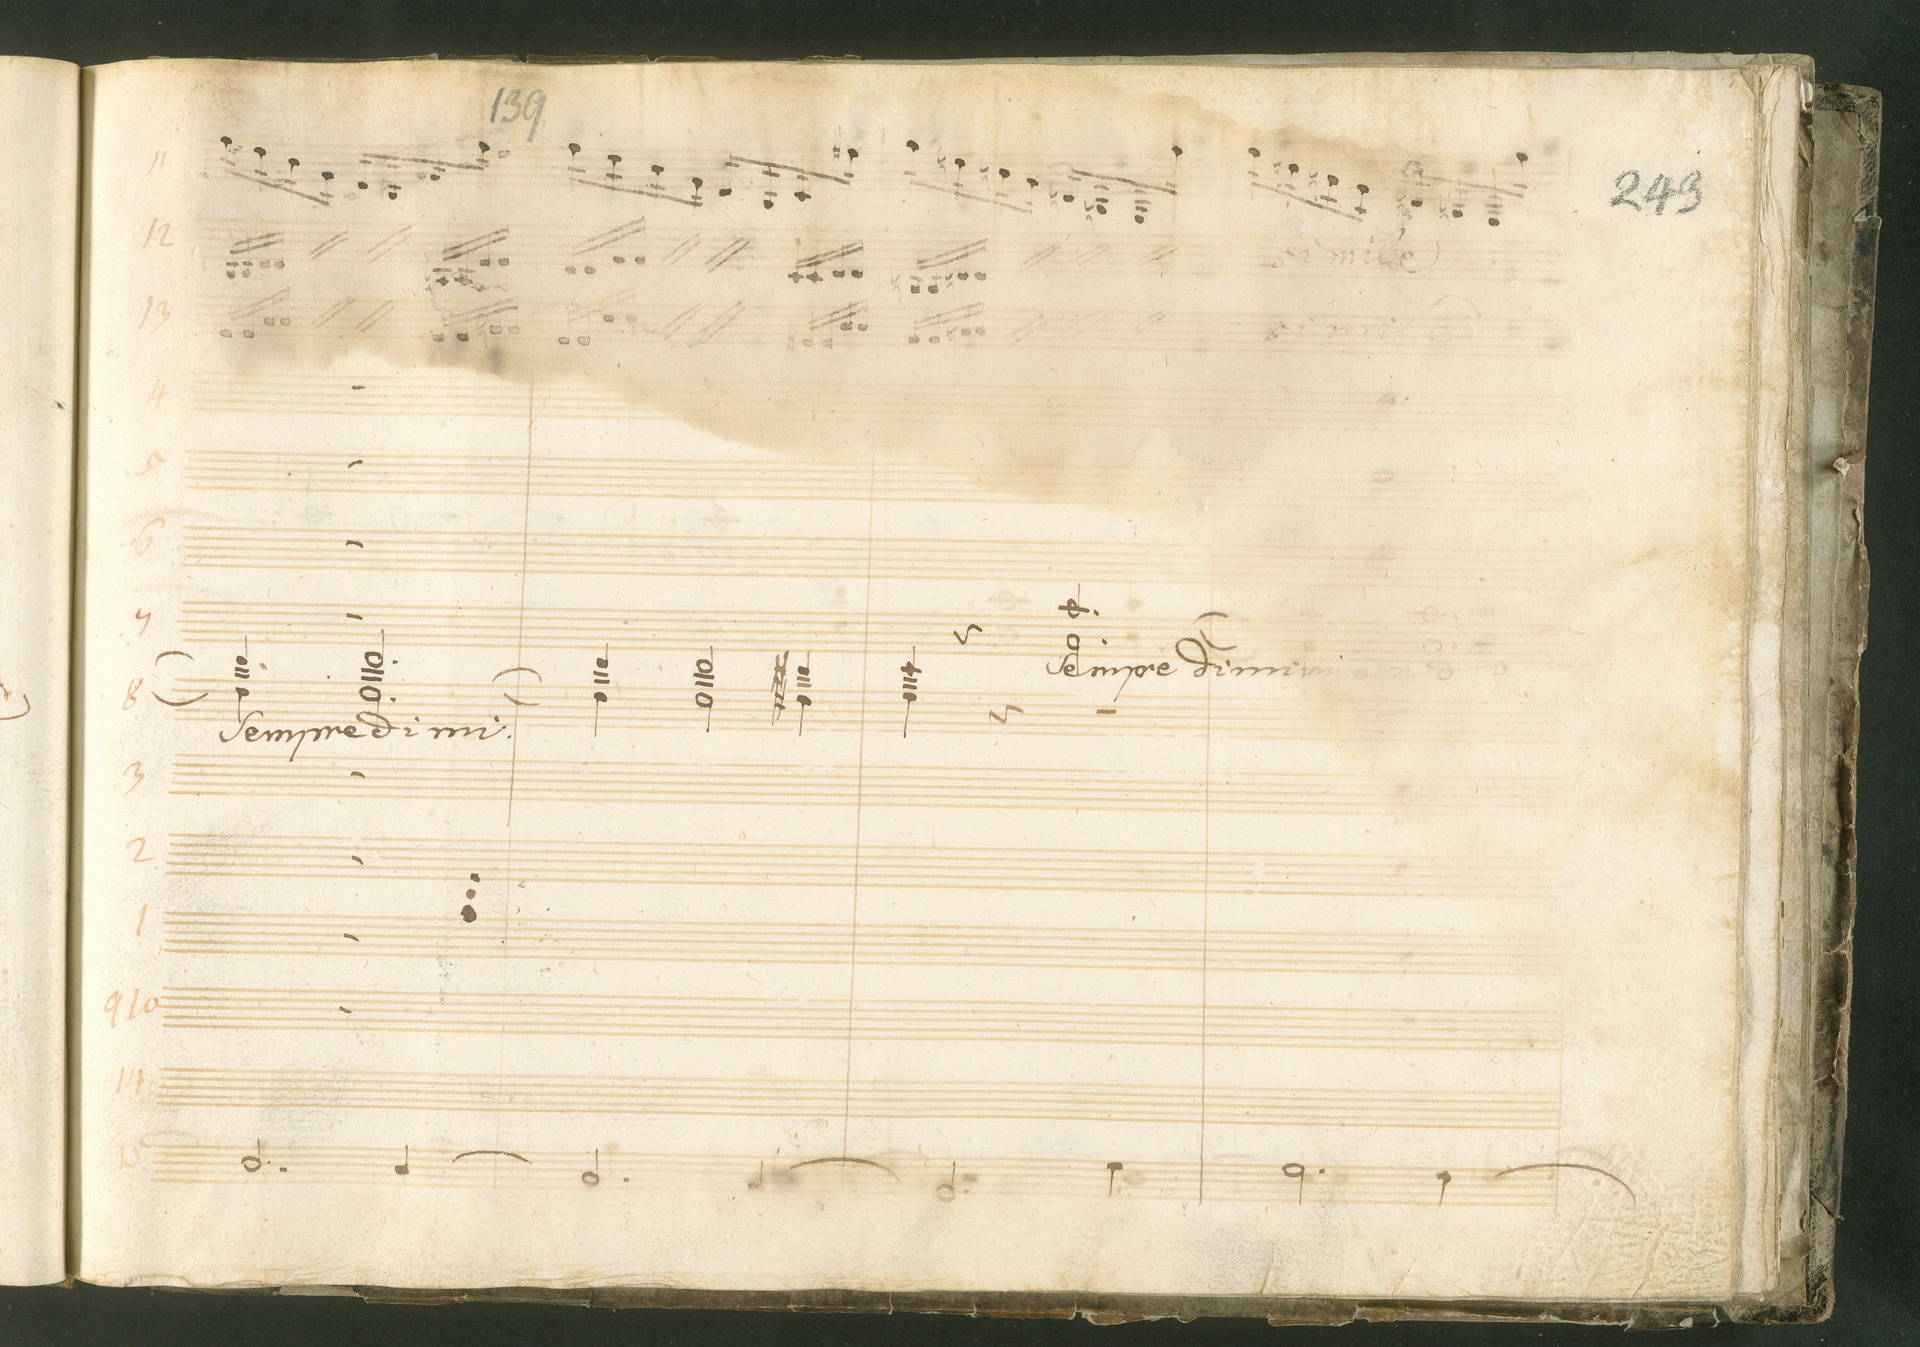 139
243
11
12
simile
13
simile
4
5
6
7
Sempre dimin
8
Sempre dimi:
3
2
1
9 10
14
15